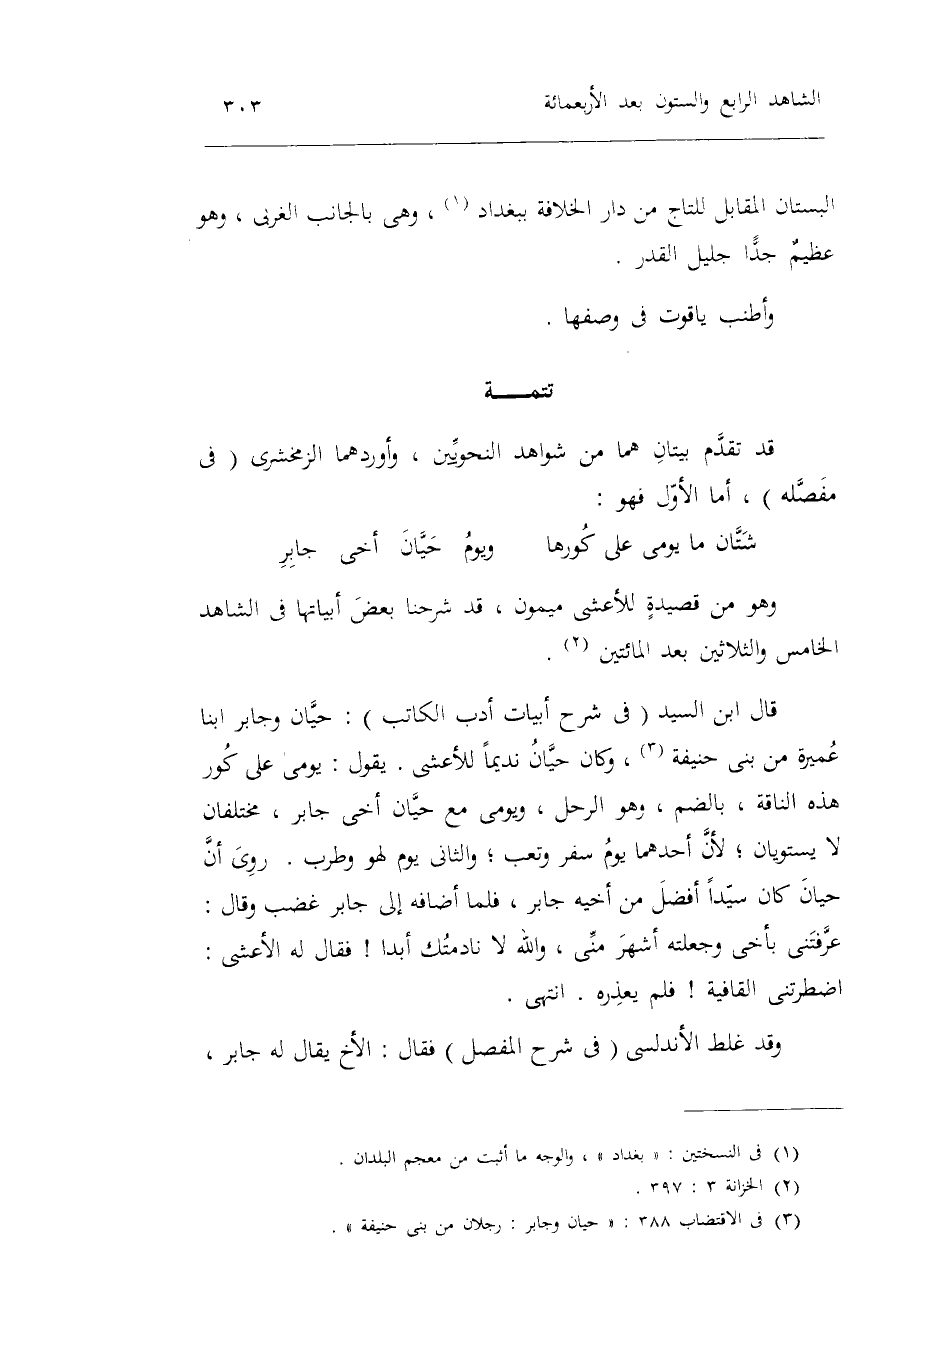 الشاهد الرابع والستون بعد الأربعمائة ٣٠٣
البستان المقابل للتاج من دار الخلافة ببغداد (١) ، وهى بالجانب الغربى ، وهو
عظيمٌ جدًّا جليل القدر .
وأطنب ياقوت فى وصفها .
تتمـــة
قد تقدَّم بيتانِ هما من شواهد النحويِّين ، وأوردهما الزمخشرى ( فى
مفَصَّله ) ، أما الأوّل فهو :
شَتَّان ما يومى على كُورها ويومُ حَيَّانَ أخى جابِرِ
وهو من قصيدةٍ للأعشى ميمون ، قد شرحنا بعضَ أبياتها فى الشاهد
الخامس والثلاثين بعد المائتين (٢) .
قال ابن السيد ( فى شرح أبيات أدب الكاتب ) : حيَّان وجابر ابنا
عُميرة من بنى حنيفة (٣) ، وكان حيَّانُ نديماً للأعشى . يقول : يومى على كُور
هذه الناقة ، بالضم ، وهو الرحل ، ويومى مع حيَّان أخى جابر ، مختلفان
لا يستويان ؛ لأنَّ أحدهما يومُ سفر وتعب ؛ والثانى يوم لهو وطرب . روِىَ أنَّ
حيانَ كان سيّداً أفضلَ من أخيه جابر ، فلما أضافه إلى جابر غضب وقال :
عرَّفتَنى بأخى وجعلته أشهرَ منِّى ، والله لا نادمتُك أبدا ! فقال له الأعشى :
اضطرتنى القافية ! فلم يعذِره . انتهى .
وقد غلط الأندلسى ( فى شرح المفصل ) فقال : الأخ يقال له جابر ،
(١) فى النسختين : « بغداد » ، والوجه ما أثبت من معجم البلدان .
(٢) الخزانة ٣ : ٣٩٧ .
(٣) فى الاقتضاب ٣٨٨ : « حيان وجابر : رجلان من بنى حنيفة » .